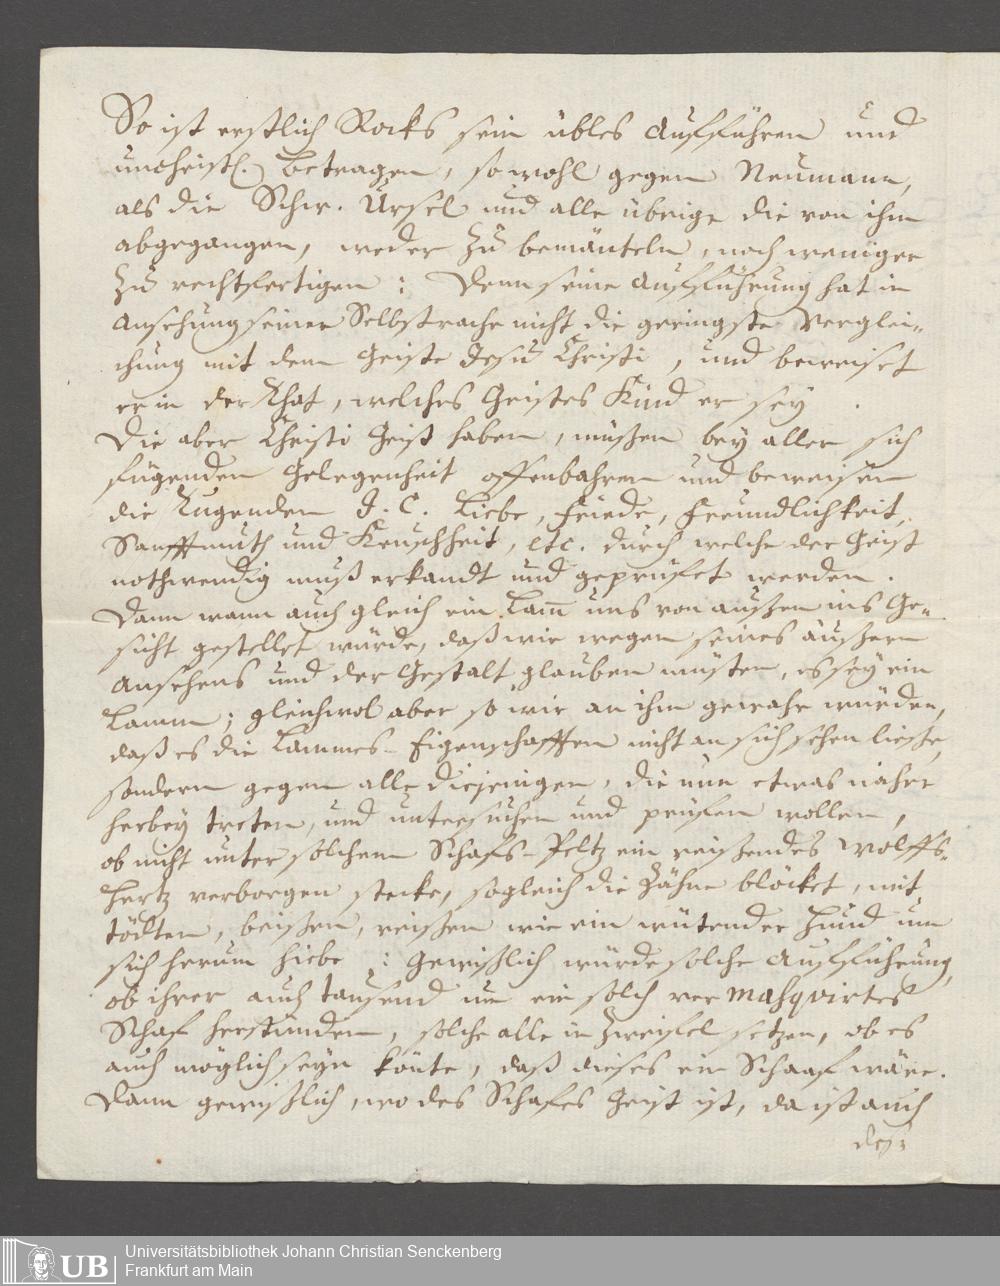 So ist erstlich Rocks sein übles Aufführen und
unchristl. betragen, so wohl gegen Neumann,
als die Schw. Ursel und alle übrige die von ihm
abgegangen, weder zu bemänteln, noch weniger
zu rechtfertigen: Denn seine Aufführung hat in
Ansehung seiner Selbstrache nicht die geringste Verglei-
chung mit dem Geiste Jesu Christi, und beweiset
er in der That, welches Geistes Kind er sey.
Die aber Christi Geist haben, müßen bey aller sich
fügenden Gelegenheit offenbahren und beweisen
die Tugenden J. C. Liebe, Friede, Freundlichkeit,
Sanfftmuth und Keuschheit, etc. durch welche der Geist
nothwendig muß erkandt und geprüfet werden.
Dann wann auch gleich ein Lam̅ uns von außen ins Ge-
sicht gestellet würde, daß wir wegen seines äußern
Ansehens und der Gestalt glauben müsten, es sey ein
Lamm; gleichwol aber so wir an ihm gewahr würden,
daß es die Lammes-Eigenschafften nicht an sich sehen ließe,
sondern gegen alle diejenigen, die nun etwas näher
herbey treten, und untersuchen und prüfen wollen,
ob nicht unter solchem Schafs-Peltz ein reißendes Wolffs-
Hertz verborgen stecke, sogleich die Zähne blöcket, mit
tödten, beißen, reißen wie ein wütender Hund um
sich herum hiebe: Gewißlich würde solche Aufführung,
ob ihrer auch tausend um ein solch vermasqvirtes
Schaf herstünden, solche alle in Zweiffel setzen, ob es
auch möglich seyn könte, daß dieses ein Schaaf wäre.
Dann gewißlich, wo des Schafes Geist ist, da ist auch
deß:
Universitätsbibliothek Johann Christian Senckenberg
Frankfurt am Main
UB